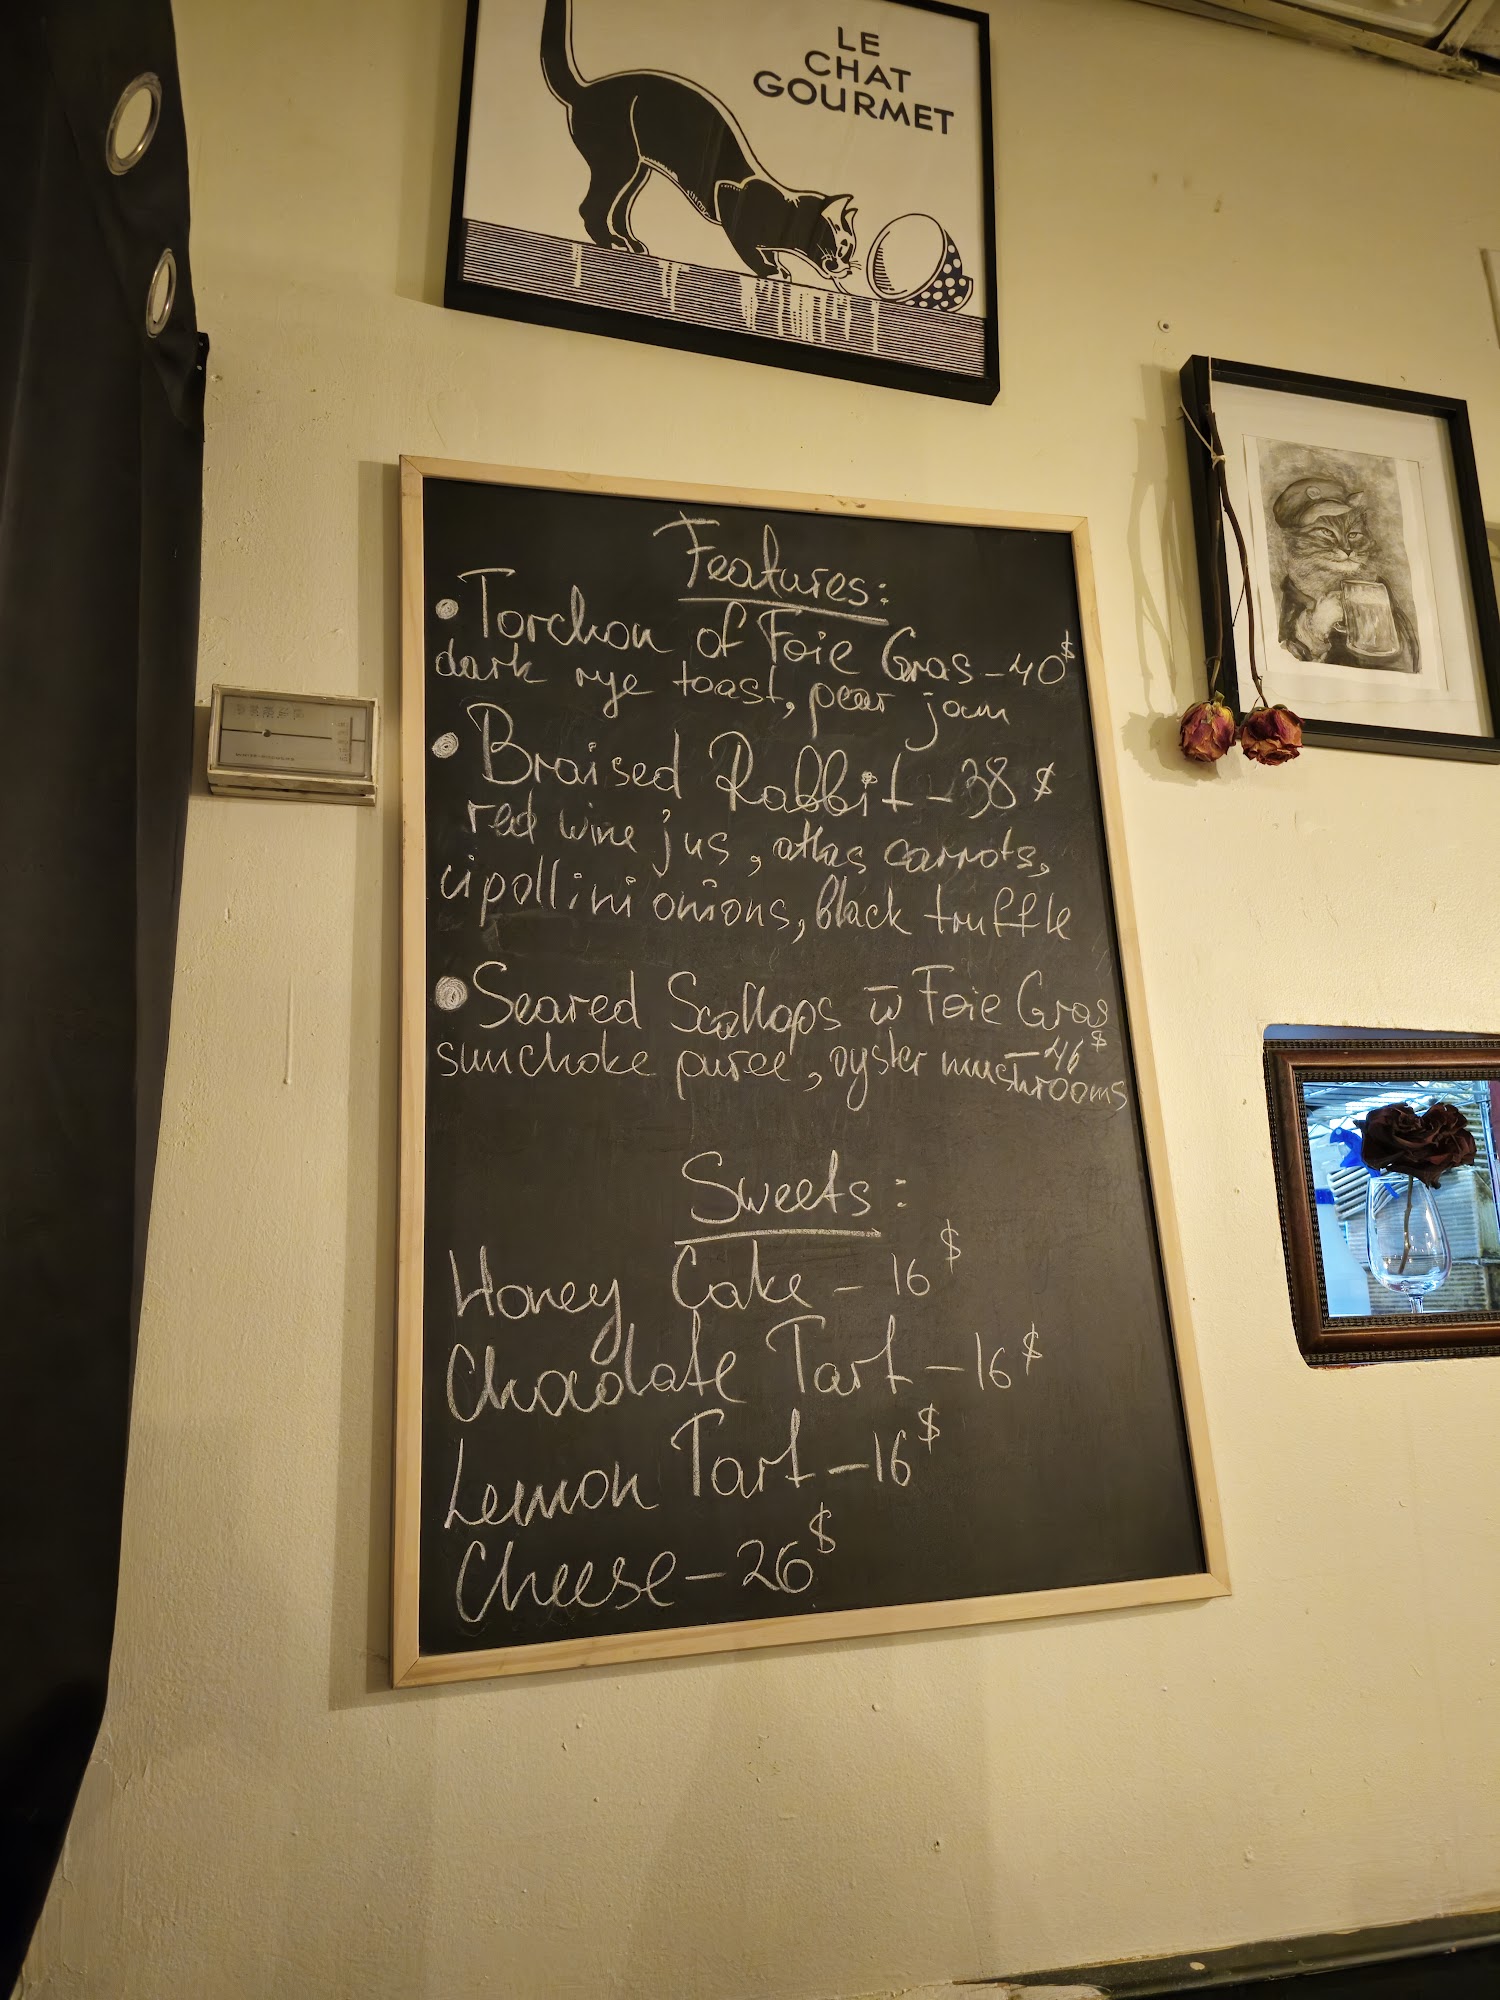 LE
CHAT
GOURMET
Features:
• Torchon of Foie Gras - 40$
dark rye toast, pear jam
• Braised Rabbit - 38$
red wine jus, atlas carrots,
cipollini onions, black truffle
• Seared Scallops w Foie Gras
- 46$
sunchoke puree, oyster mushrooms
Sweets:
Honey Cake - 16$
Chocolate Tart - 16$
Lemon Tart - 16$
Cheese - 26$